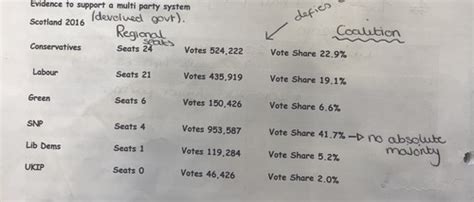 Evidence to support a multi party system
Scotland 2016 (devolved govt).
defies
Regional seats
Coalition
Conservatives Seats 24 Votes 524,222 Vote Share 22.9%
Labour Seats 21 Votes 435,919 Vote Share 19.1%
Green Seats 6 Votes 150,426 Vote Share 6.6%
SNP Seats 4 Votes 953,587 Vote Share 41.7% → no absolute majority
Lib Dems Seats 1 Votes 119,284 Vote Share 5.2%
UKIP Seats 0 Votes 46,426 Vote Share 2.0%